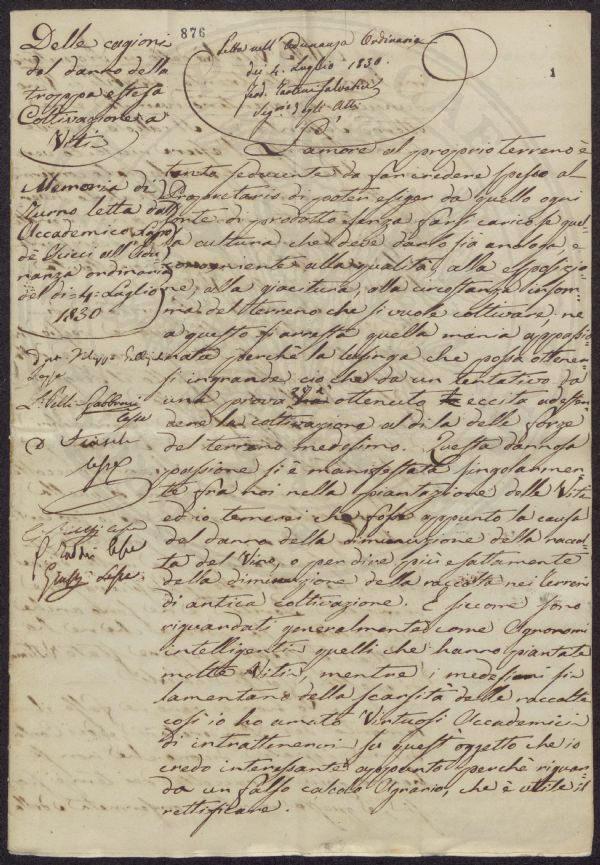 876
1
Delle cagioni
del danno della
troppa estesa
Coltivazione a
Viti
Letta nell'Adunanza Ordinaria
dei 4. Luglio 1830.
Segr. degli Atti
Memoria di
Turno letta dall'
Accademico Lapo
de Ricci all'Adu-
nanza ordinaria
del dì 4. Luglio
1830
L'amore al proprio terreno è
tanto seducente da far credere spesso al
Proprietario di poter esiger da quello ogni
sorte di prodotto senza farsi carico se quel-
la cultura che deve darlo sia analoga e
conveniente alla qualità, alla esposizio-
ne, alla giacitura, alla circostanza insom-
ma del terreno che si vuole coltivare; ne
a questo si arresta quella mania appassio-
nata perchè la lusinga che possa ottener-
si in grande ciò che da un tentativo da
una prova si è ottenuto eccita ad esten-
dere la coltivazione al di la delle forze
del terreno medesimo. Questa dannosa
passione si è manifestata singolarmen-
te fra noi nella piantazione delle Viti
ed io temerei che fosse appunto la causa
del danno della diminuzione della raccol-
ta del Vino, o per dire più esattamente
della diminuzione della raccolta nei terreni
di antica coltivazione. E siccome sono
riguardati generalmente come Agronomi
intelligenti quelli che hanno piantate
molte Viti, mentre i medesimi si
lamentano della scarsità delle raccolte
così io ho amato Virtuosi Accademici
di intrattenervi su quest'oggetto che io
credo interessante appunto perchè riguar-
da un falso calcolo Agrario, che è utile il
rettificare.
lesse
lesse
lesse